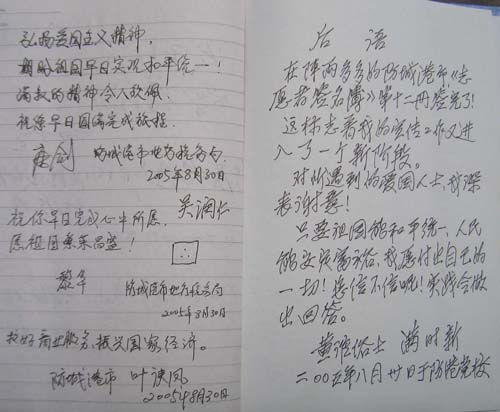 弘扬爱国主义精神,
期盼祖国早日实现和平统一!
满敖的精神令人敬佩,
祝您早日圆满完成旅程.
唐剑 防城港市地方税务局.
2005年8月30日
吴润仁
祝你早日完成心中所愿,
愿祖国繁荣昌盛!
黎华 防城港市地方税务局
2005年8月30日
搞好商业服务、振兴国家经济。
防城港市 叶
2005年8月30日
后语
在阵雨多多的防城港市《志
愿者签名簿》第十二册签完了!
这标志着我的宣传工作又进
入了一个新阶段。
对所遇到的爱国人士,我深
表谢意!
只要祖国能和平统一,人民
能安定富裕,我愿付出自己的
一切!您信不信呢!实践会做
出回答。
满时新
二00五年八月卅日于防港